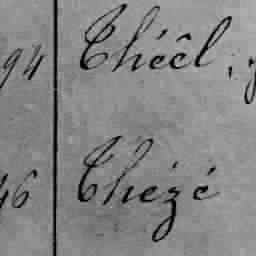 94 Chéêl,
46 Chézé